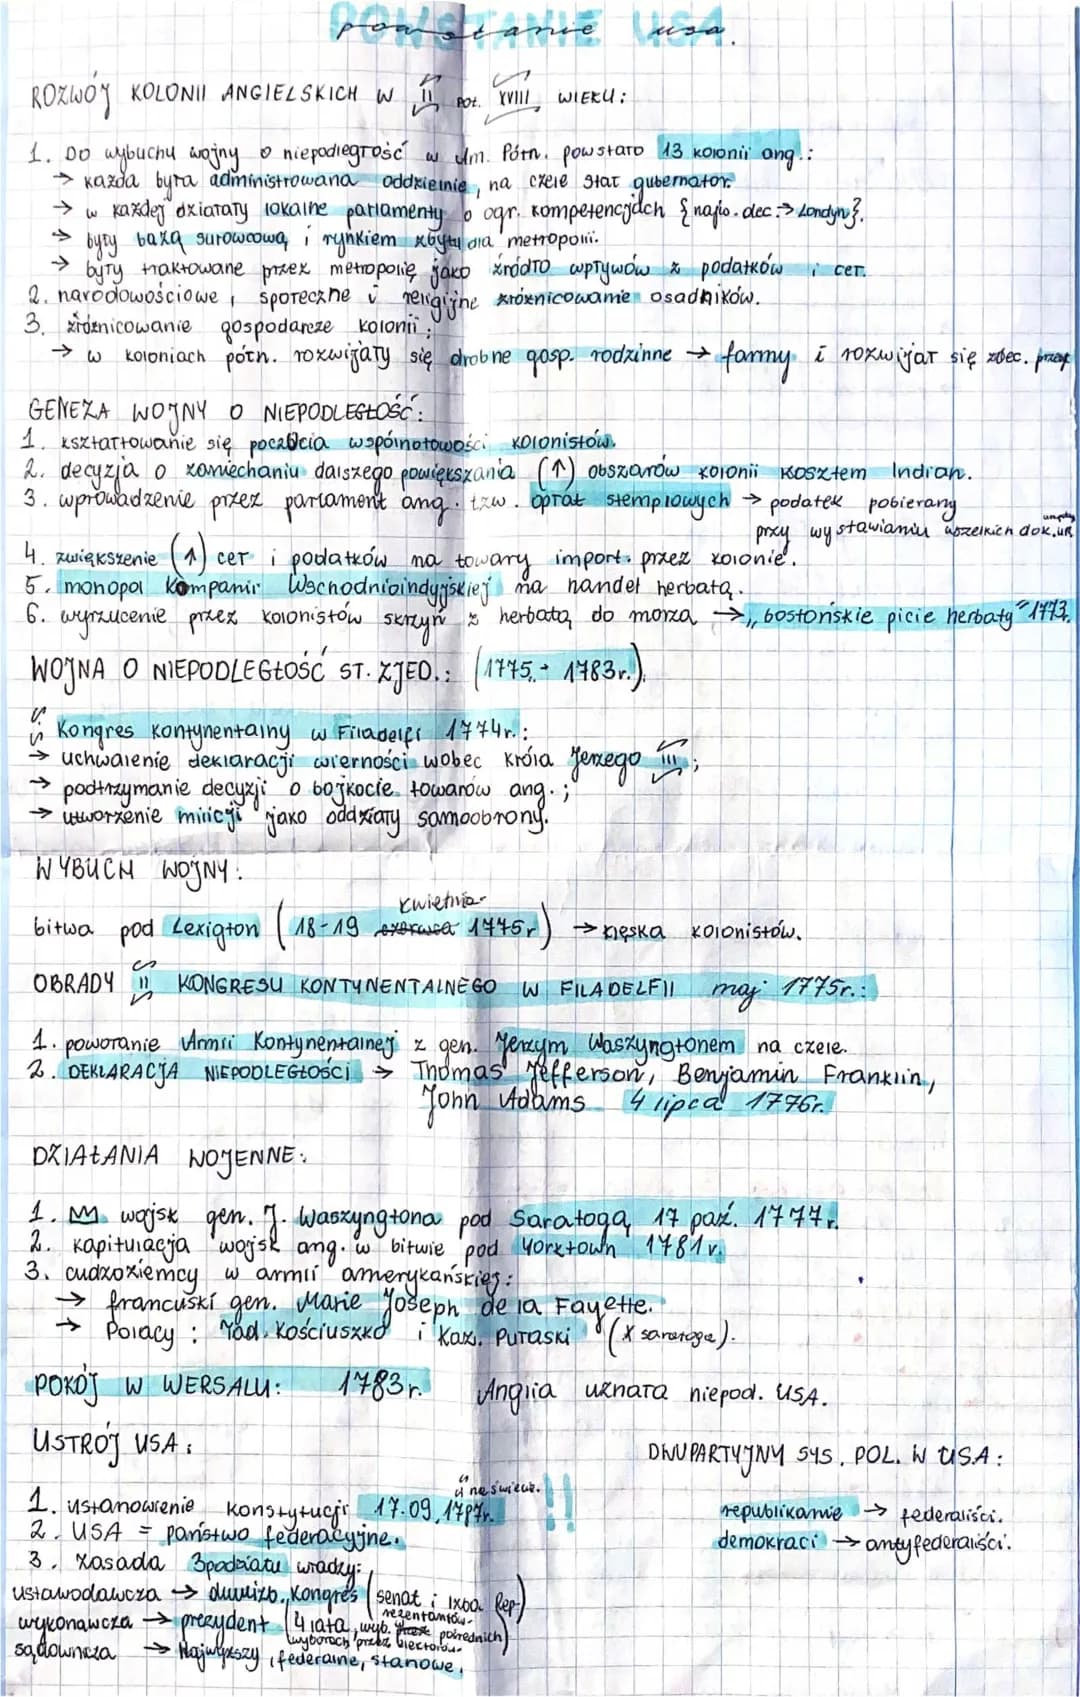 POWSTANIE USA
powstanie usa.
ROZWÓJ KOLONII ANGIELSKICH W II POŁ. XVIII WIEKU:
1. Do wybuchu wojny o niepodległość w Am. Półn. powstało 13 kolonii ang.:
→ każda była administrowana oddzielnie, na czele stał gubernator.
→ w każdej działały lokalne parlamenty o ogr. kompetencjach {najw. dec. → Londyn}.
→ były bazą surowcową i rynkiem zbytu dla metropolii.
→ były traktowane przez metropolię jako źródło wpływów z podatków i ceł.
2. narodowościowe, społeczne i religijne zróżnicowanie osadników.
3. zróżnicowanie gospodarcze kolonii:
→ w koloniach półn. rozwijały się drobne gosp. rodzinne → farmy i rozwijał się
GENEZA WOJNY O NIEPODLEGŁOŚĆ:
1. kształtowanie się poczucia wspólnotowości kolonistów.
2. decyzja o zaniechaniu dalszego powiększania (↑) obszarów kolonii kosztem Indian.
3. wprowadzenie przez parlament ang. tzw. opłat stemplowych → podatek pobierany
przy wystawianiu wszelkich dok. urzęd.
4. zwiększenie (↑) ceł i podatków na towary import. przez kolonie.
5. monopol Kompanii Wschodnioindyjskiej na handel herbatą.
6. wyrzucenie przez kolonistów skrzyń z herbatą do morza → „bostońskie picie herbaty" 1773.
WOJNA O NIEPODLEGŁOŚĆ ST. ZJED.: (1775 - 1783r.)
I Kongres kontynentalny w Filadelfi 1774r.:
→ uchwalenie deklaracji wierności wobec króla Jerzego III;
→ podtrzymanie decyzji o bojkocie towarów ang.;
→ utworzenie milicji jako oddziały samoobrony.
WYBUCH WOJNY:
kwietnia
bitwa pod Lexigton (18-19 czerwca 1775r) → klęska kolonistów.
OBRADY II KONGRESU KONTYNENTALNEGO W FILADELFII maj 1775r.:
1. powołanie Armii Kontynentalnej z gen. Jerzym Waszyngtonem na czele.
2. DEKLARACJA NIEPODLEGŁOŚCI → Thomas Jefferson, Benjamin Franklin,
John Adams 4 lipca 1776r.
DZIAŁANIA WOJENNE:
1. wojsk gen. J. Waszyngtona pod Saratogą 17 paź. 1777r.
2. kapitulacja wojsk ang. w bitwie pod Yorktown 1781r.
3. cudzoziemcy w armii amerykańskiej:
→ francuski gen. Marie Joseph de la Fayette.
→ Polacy: Tad. Kościuszko i Kaz. Pułaski (X saratoga).
POKÓJ W WERSALU: 1783r. Anglia uznała niepod. USA.
USTRÓJ USA:
DWUPARTYJNY SYS. POL. W USA:
I na świecie.
1. ustanowienie konstytucji 17.09.1787r. !!
republikanie → federaliści.
2. USA = państwo federacyjne.
demokraci → antyfederaliści.
3. zasada 3podziału władzy:
ustawodawcza → dwuizb. Kongres (senat i Izba Rep-
rezentantów)
wykonawcza → prezydent (4 lata, wyb. pośrednich
wyborach przez elektorów)
sądownicza → Najwyższy, federalne, stanowe.